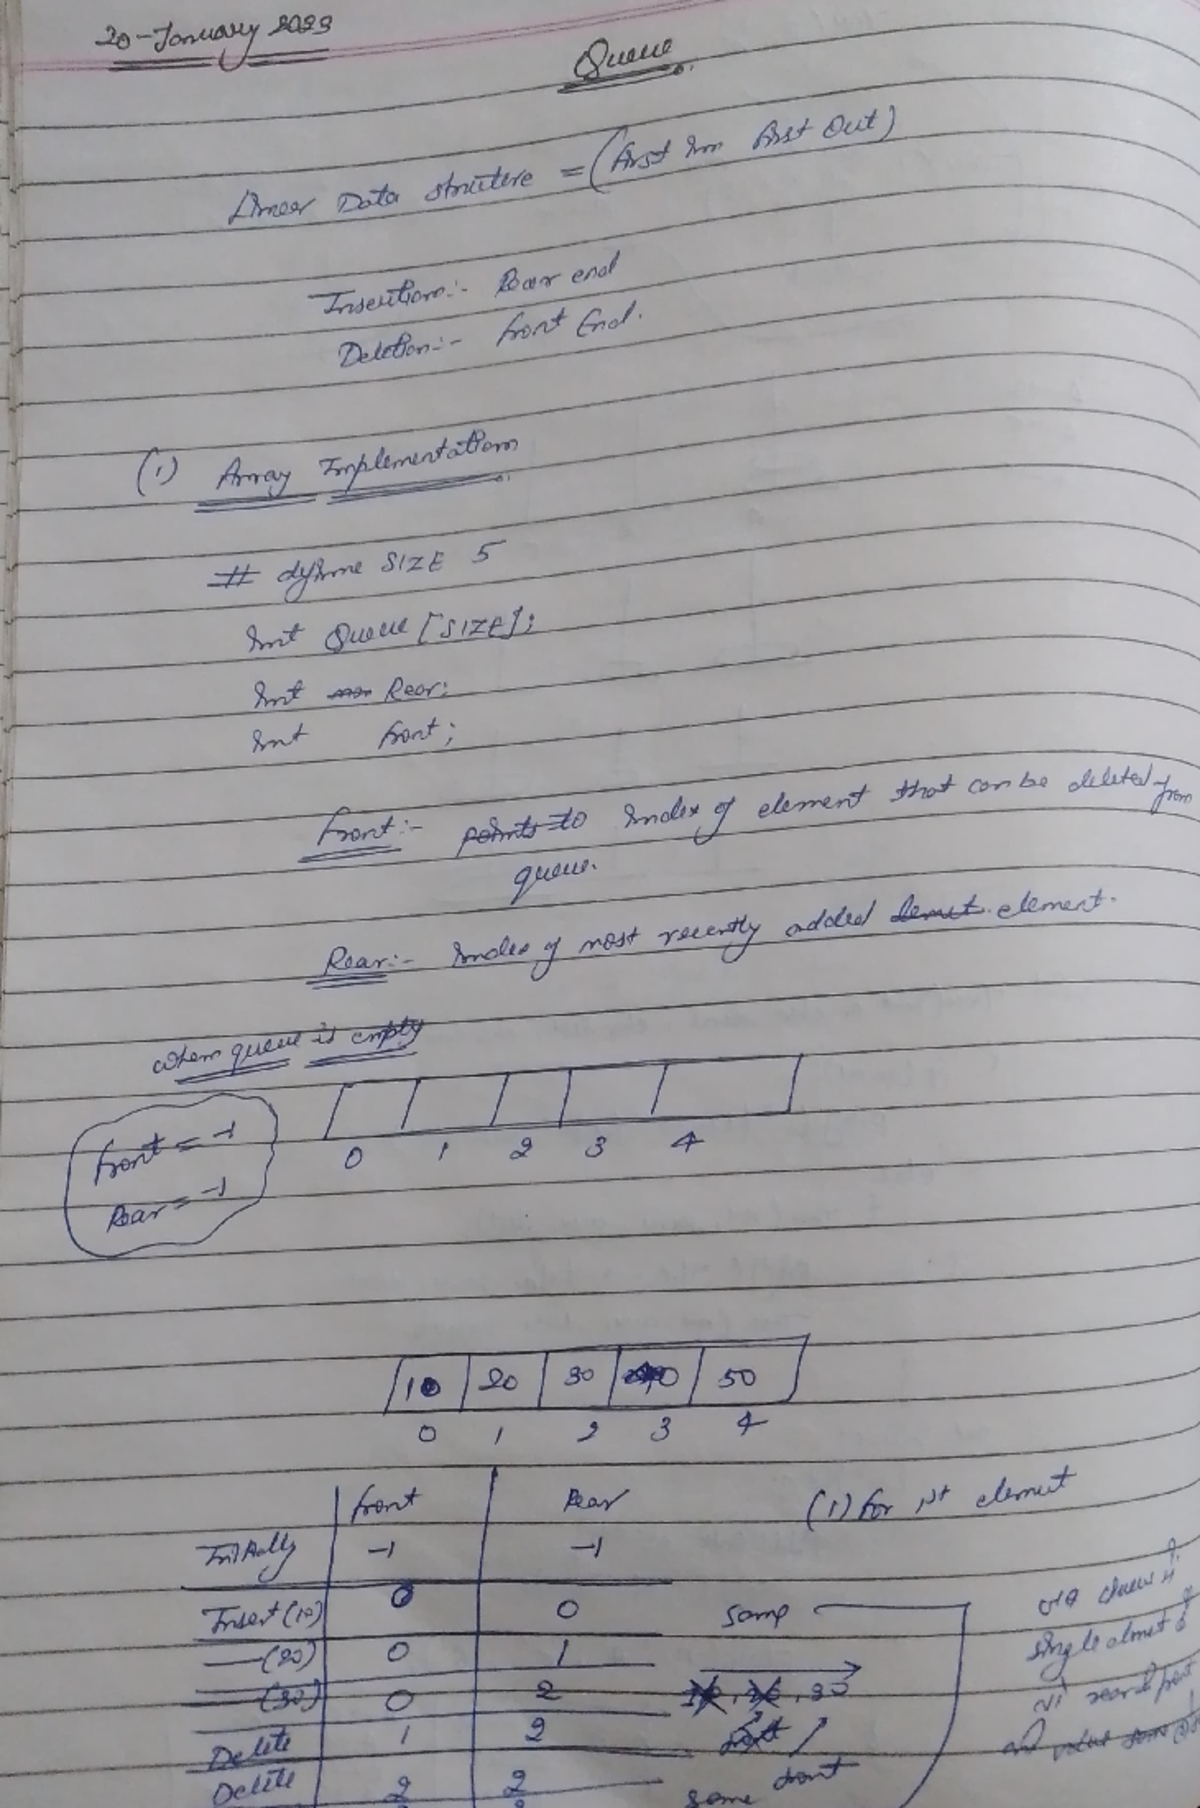 20-January 2023
Queue
Linear Data structure = (First In First Out)
Insertion:- Rear end
Deletion:- Front End.
(1) Array Implementation
# define SIZE 5
Int Queue [SIZE];
Int Rear;
Int Front;
Front:- points to Index of element that can be deleted from
queue.
Rear:- Index of most recently added element.
when queue is empty
Front = -1
Rear = -1
0 1 2 3 4
10 20 30 40 50
0 1 2 3 4
Front Rear (1) For 1st element
Initially -1 -1
Insert (10) 0 0 Same
(20) 0 1 single
(30) 0 2 10, 20, 30
Delete 1 2 front
front
Delete 2 2 Same